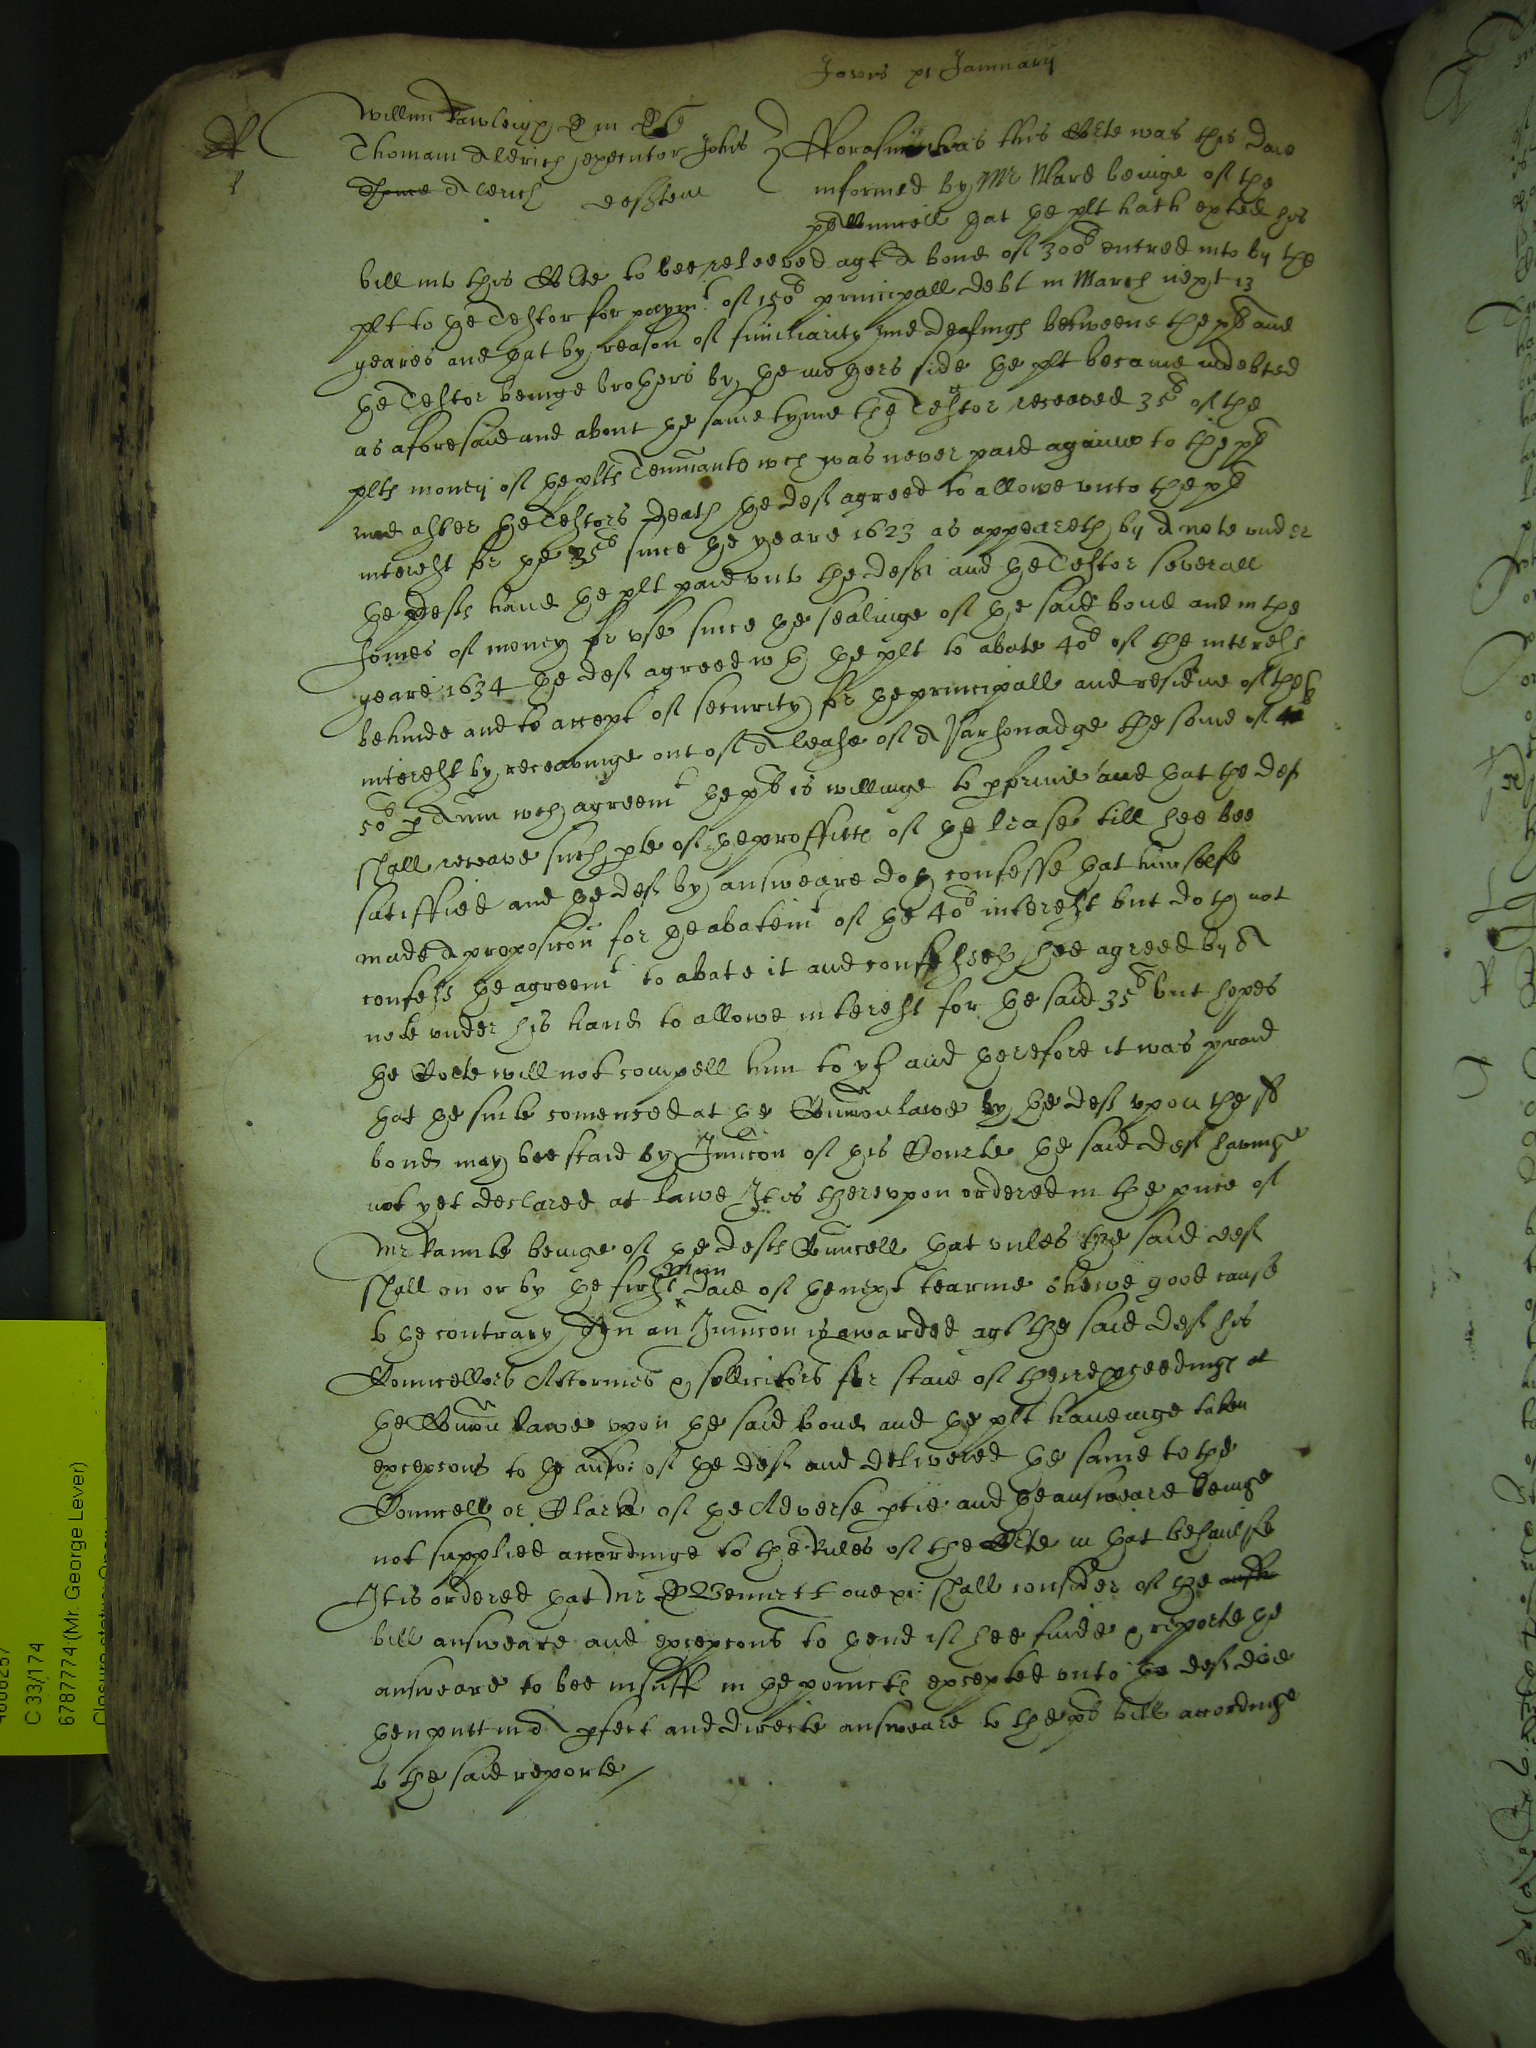 Jovis xi Januarij
Willm Rawleigh Ar in
Thomam Aldrich executor Johis
Aldrich defftem
Fforasmuch as this Cete was this daie
informed by Mr Ward beinge of the
plts Councell that the plt hath exhted his
bill into this Cete to bee releeved agt a bond of 300l entred into by the
plt to the Testor for paymt of 150l principall debt in March next 13
yeares and that by reason of familiarity and dealings betweene the pl and
the Testor beinge brothers by the mothers side the plt became indebted
as aforesaid and about the same tyme the Testor receaved 35l of the
plts money of the plts Tennants wch was never paid againe to the pl
and after the Testors death the deft agreed to allowe unto the pl
interest for the 35l since the yeare 1623 as appeareth by a note under
the defts hand the plt paid unto the deft and the Testor severall
somes of money for use since the sealinge of the said bond and in the
yeare 1634 the deft agreed wth the plt to abate 40l of the interest
behinde and to accept of security for the principall and residue of the
interest by receavinge out of a lease of a Parsonadge the some of
50l p Ann wch agreemt the pl is willinge to pforme and that the deft
shall receave such pte of the proffitts of the lease till hee bee
satisffied and the deft by answeare doth confesse that himselfe
made a proposicon for the abatemt of the 40l interest but doth not
confess the agreemt to abate it and confesseth hee agreed by a
note under his hand to allowe interest for the said 35l but hopes
the Corte will not compell him to yt and therefore it was praid
that the suite comenced at the Comon lawe by the deft upon the sd
bond may bee staid by Iniuncon of this Courte the said deft havinge
not yet declared at lawe It is thereupon ordered in the pnce of
Mr beinge of the defts Councell that unles the said deft
shall on or by the first daie of the next tearme shewe good cause
to the contrary Then an Iniuncon is awarded agt the said deft his
Councellors Attornies & sollicitors for staie of their pceedings at
the Comon lawe upon the said bond and the plt haveinge taken
excepcons to the answ: of the deft and delivered the same to the
Councell or Clarke of the Adverse ptie and the answeare beinge
not supplied accordinge to the Rules of the Cete in that behaulfe
It is ordered that Mr Dr Bennett one &c: shall consider of the
bill answeare and excepcons to thend if hee finde & reporte the
answeare to bee insuff in the pointes excepted unto the deft die
then putt in a pfect and directe answeare to the pl bill accordinge
to the said reporte
C 33/174
6787774 (Mr. George Lever)